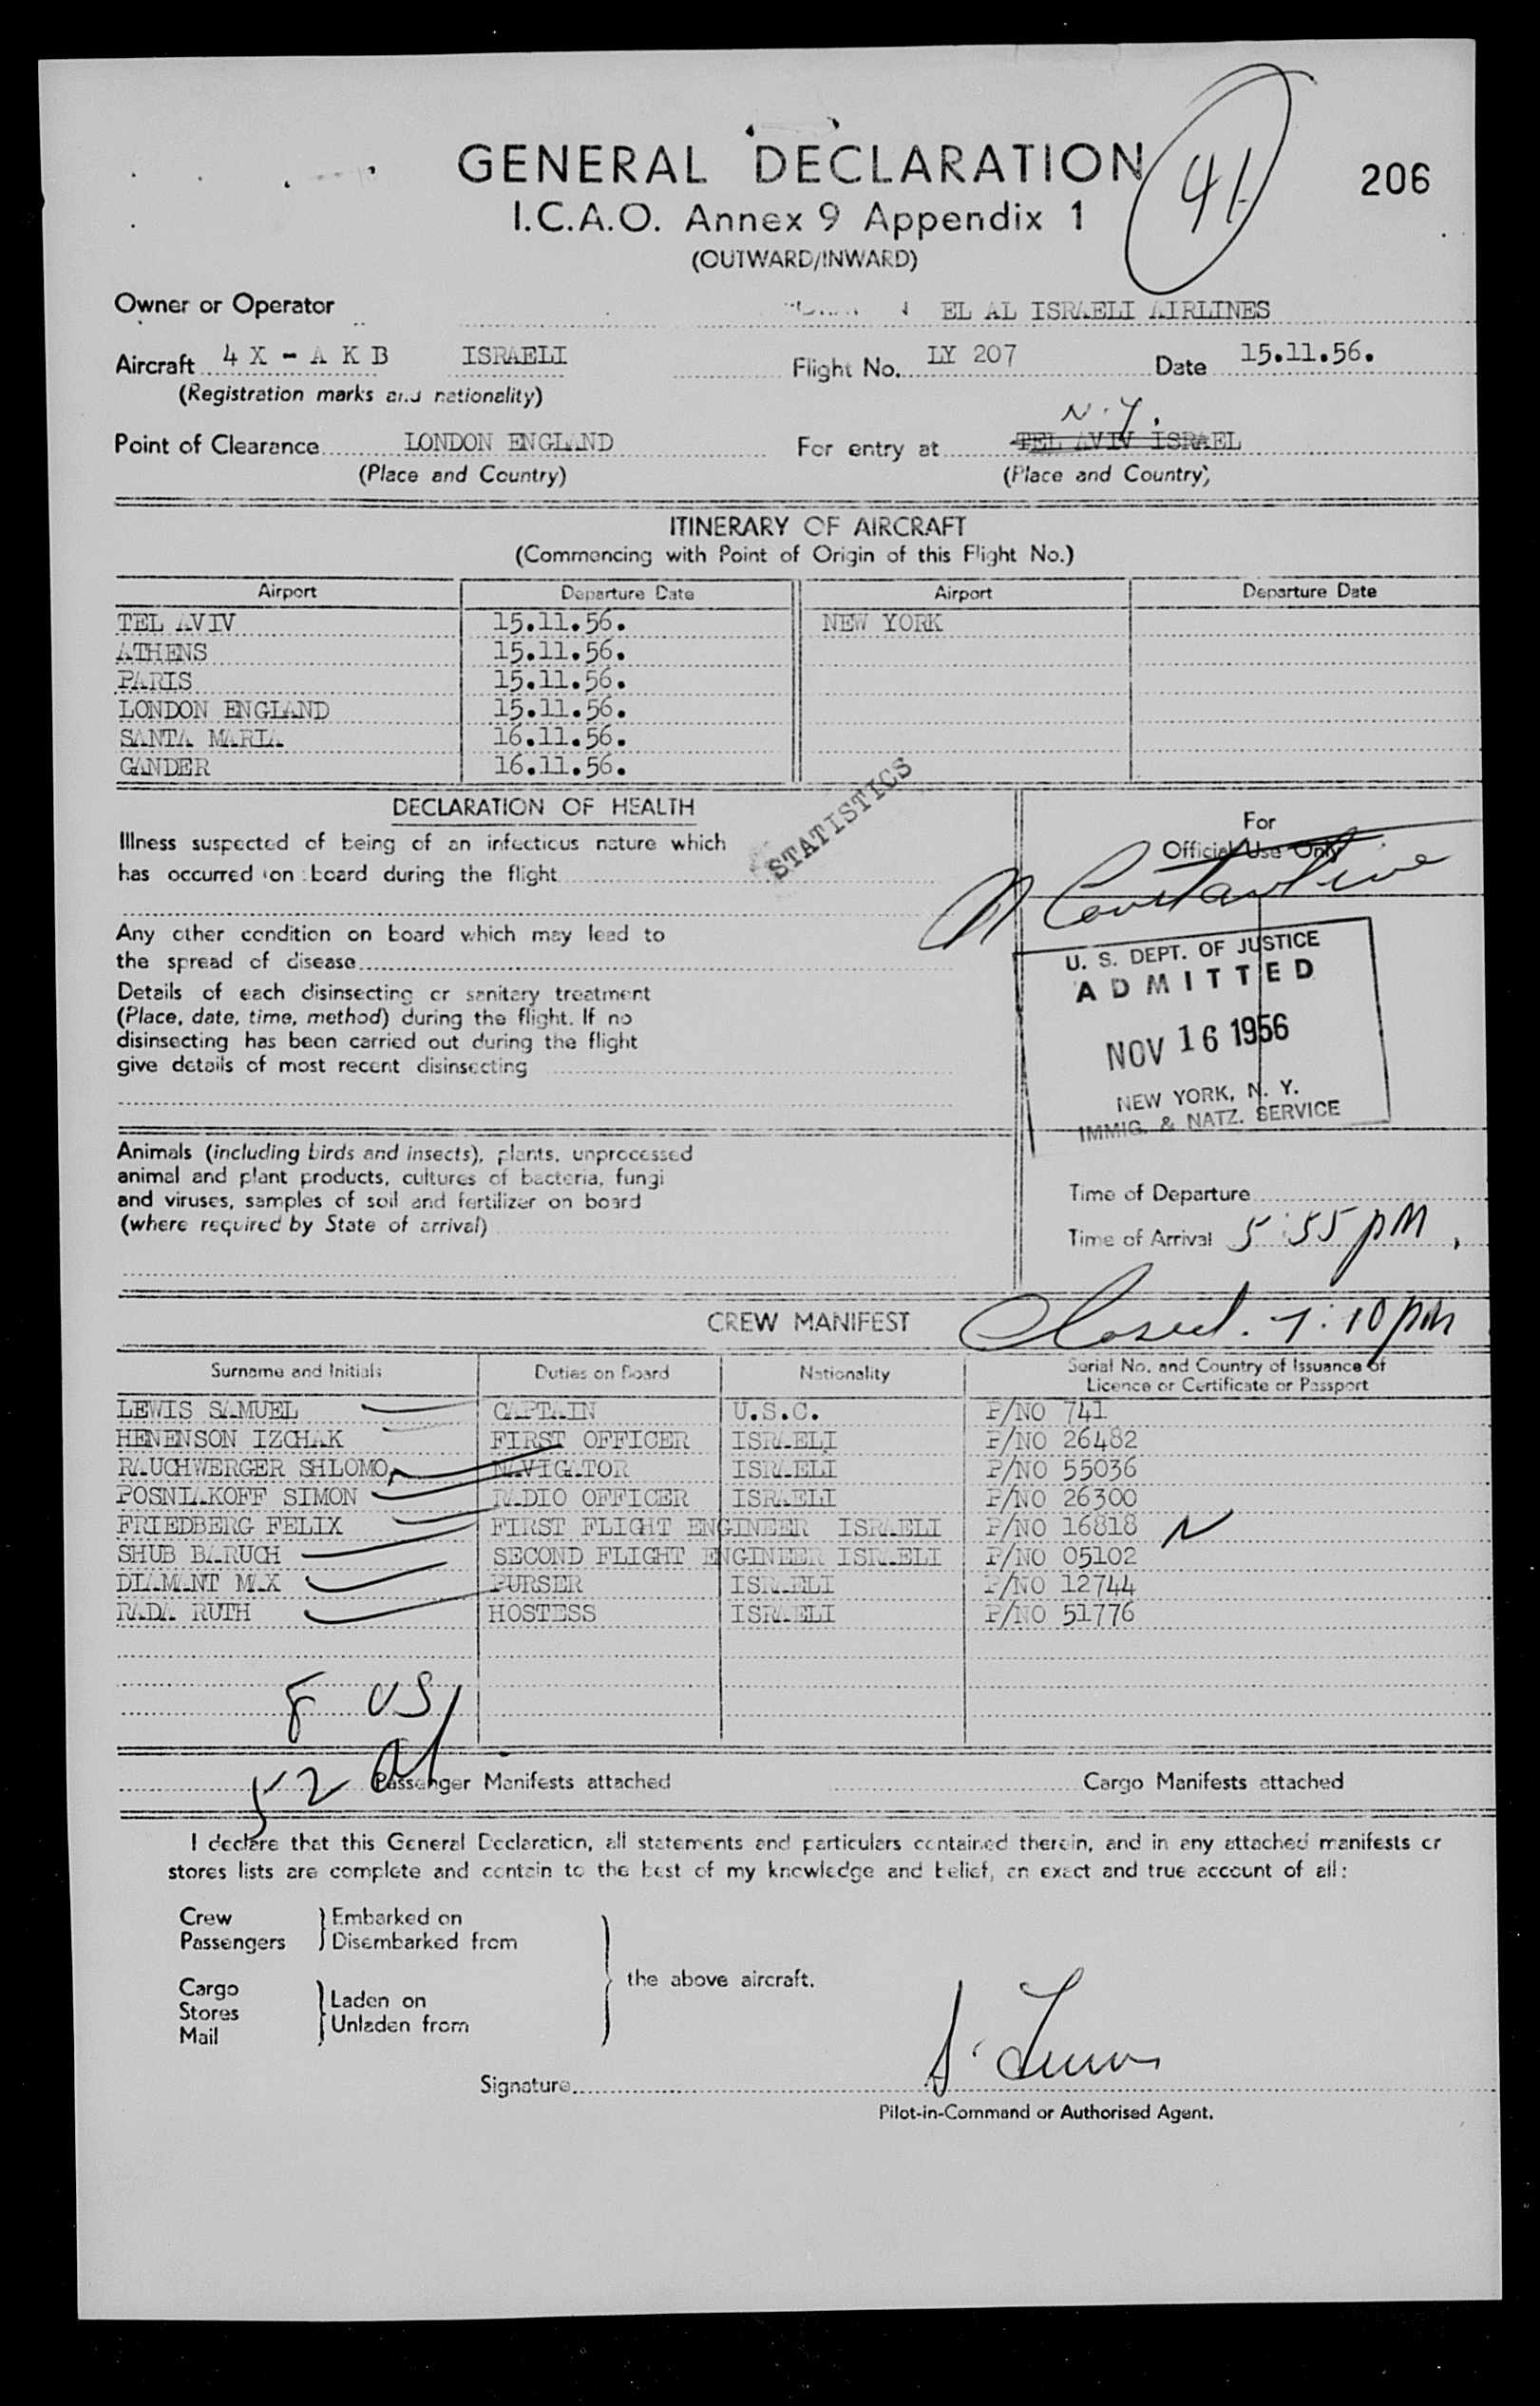 GENERAL DECLARATION
41
206
I.C.A.O. Annex 9 Appendix 1
(OUTWARD/INWARD)
Owner or Operator EL AL ISRAELI AIRLINES
Aircraft 4 X - A K B ISRAELI Flight No. LY 207 Date 15.11.56.
(Registration marks and nationality)
N.Y.
Point of Clearance LONDON ENGLAND For entry at TEL AVIV ISRAEL
(Place and Country) (Place and Country)
ITINERARY OF AIRCRAFT
(Commencing with Point of Origin of this Flight No.)
Airport Departure Date Airport Departure Date
TEL AVIV 15.11.56. NEW YORK
ATHENS 15.11.56.
PARIS 15.11.56.
LONDON ENGLAND 15.11.56.
SANTA MARIA 16.11.56.
GANDER 16.11.56.
STATISTICS
DECLARATION OF HEALTH
Illness suspected of being of an infectious nature which
has occurred on board during the flight
Any other condition on board which may lead to
the spread of disease
Details of each disinsecting or sanitary treatment
(Place, date, time, method) during the flight. If no
disinsecting has been carried out during the flight
give details of most recent disinsecting
For
Official Use Only
N Constantine
U. S. DEPT. OF JUSTICE
ADMITTED
NOV 16 1956
NEW YORK, N. Y.
IMMIG. & NATZ. SERVICE
Animals (including birds and insects), plants, unprocessed
animal and plant products, cultures of bacteria, fungi
and viruses, samples of soil and fertilizer on board
(where required by State of arrival)
Time of Departure
Time of Arrival 5:55 PM
CREW MANIFEST
Closed. 7:10 pm
Surname and Initials Duties on Board Nationality Serial No. and Country of Issuance of
Licence or Certificate or Passport
LEWIS SAMUEL CAPTAIN U.S.C. P/NO 741
HENENSON IZCHAK FIRST OFFICER ISRAELI P/NO 26482
RAUCHWERGER SHLOMO NAVIGATOR ISRAELI P/NO 55036
POSNIAKOFF SIMON RADIO OFFICER ISRAELI P/NO 26300
FRIEDBERG FELIX FIRST FLIGHT ENGINEER ISRAELI P/NO 16818
SHUB BARUCH SECOND FLIGHT ENGINEER ISRAELI P/NO 05102
DIAMANT MAX PURSER ISRAELI P/NO 12744
RADA RUTH HOSTESS ISRAELI P/NO 51776
8 US
52 al
Passenger Manifests attached Cargo Manifests attached
I declare that this General Declaration, all statements and particulars contained therein, and in any attached manifests or
stores lists are complete and contain to the best of my knowledge and belief, an exact and true account of all:
Crew Embarked on
Passengers Disembarked from
the above aircraft.
Cargo
Stores Laden on
Mail Unladen from
S. Lewis
Signature
Pilot-in-Command or Authorised Agent.